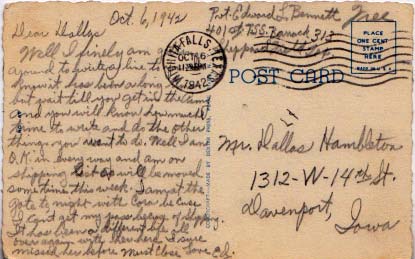 Oct. 6, 1942
Dear Dallas
Well I finely am
around to write a line to
know it has been a long
but wait till you get in the army
and you will know how much
time to write and do the other
things you want to do. Well I am
O.K. in every way and am on
shipping list will be moved
some time this week. I am at the
gate to night with Cora be cuse
I can't get my pass because of shipping.
It has been a different life all
over again with her here. I sure
missed her before Must Close Love Ed.
Pvt. Edward L. Bennett
401 st TSS. Barrack 313
Sheppard Field
Free
WICHITA FALLS, TEX.
OCT 6
1942
PLACE
ONE CENT
STAMP
HERE
MADE IN U.S.A.
POST CARD
Mr. Dallas Hambleton
1312-W-14th St.
Davenport,
Iowa